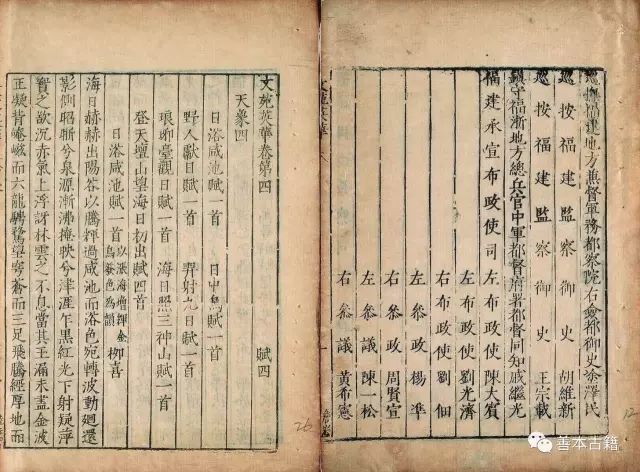 巡撫福建地方兼督軍務都察院右僉都御史塗澤民
巡按福建監察御史 胡維新
巡按福建監察御史 王宗載
鎮守福浙地方總兵官中軍都督府署都督同知戚繼光
福建承宣布政使司左布政使陳大賓
右布政使劉光濟
右布政使劉佃
左叅政楊準
右叅政周賢宣
左叅議陳一松
右叅議黃希憲
文苑英華
文苑英華卷第四
天象四 賦四
日浴咸池賦一首 日中烏賦一首
野人獻日賦一首 羿射日賦一首
琅琊臺觀日賦一首 海日照三神山賦一首
登天壇山望海日初出賦四首
日浴咸池賦一首 以漲海增輝金烏養色爲韻 柳喜
海日赫赫出陽谷以騰輝過咸池而浴色宛轉波動廻還
影側昭晣兮泉源漸沸掩映兮津涯乍黑紅光下射疑萍
實之欲沉赤氣上浮訝林雲之不息當其王滿未盡金波
正凝背崦嵫而六龍騁騖望穹蒼而三足飛騰經厚地而
26
12
善本古籍